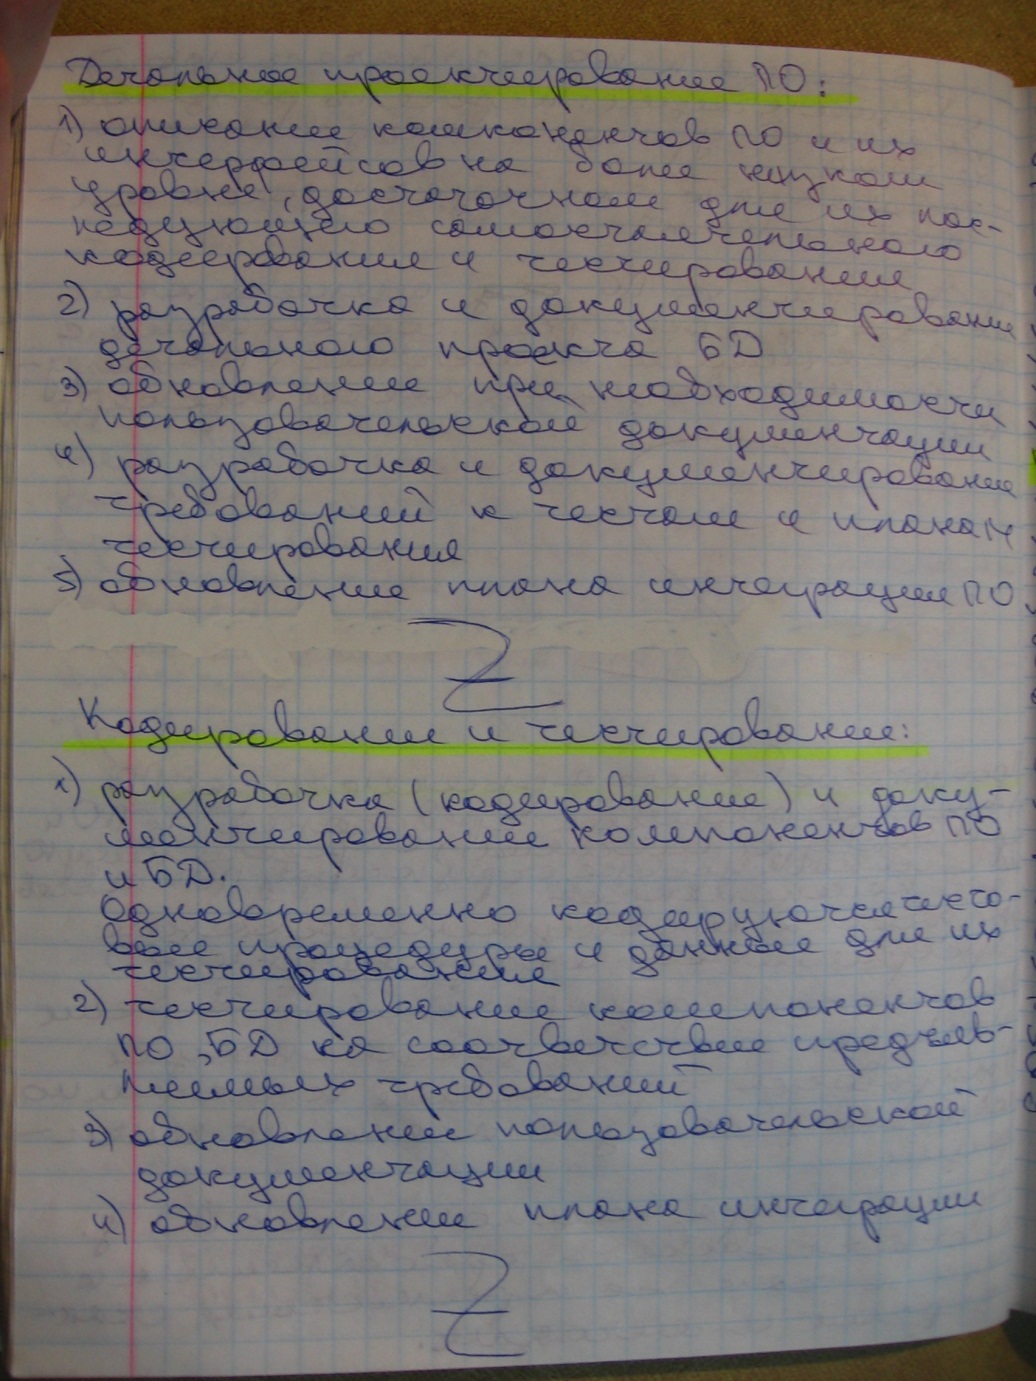 Детальное проектирование ПО:
1) описание компонентов ПО и их
интерфейсов на более низком
уровне, достаточном для их пос-
ледующего самостоятельного
кодирования и тестирования
2) разработка и документирование
детального проекта БД
3) обновление при необходимости
пользовательской документации
4) разработка и документирование
требований к тестам и планам
тестирования
5) обновление плана интеграции ПО
Z
Кодирование и тестирование:
1) разработка (кодирование) и доку-
ментирование компонентов ПО
и БД.
Одновременно кодируются тесто-
вые процедуры и данные для их
тестирования
2) тестирование компонентов
ПО, БД на соответствие предъяв-
ляемых требований
3) обновление пользовательской
документации
4) обновление плана интеграции
Z